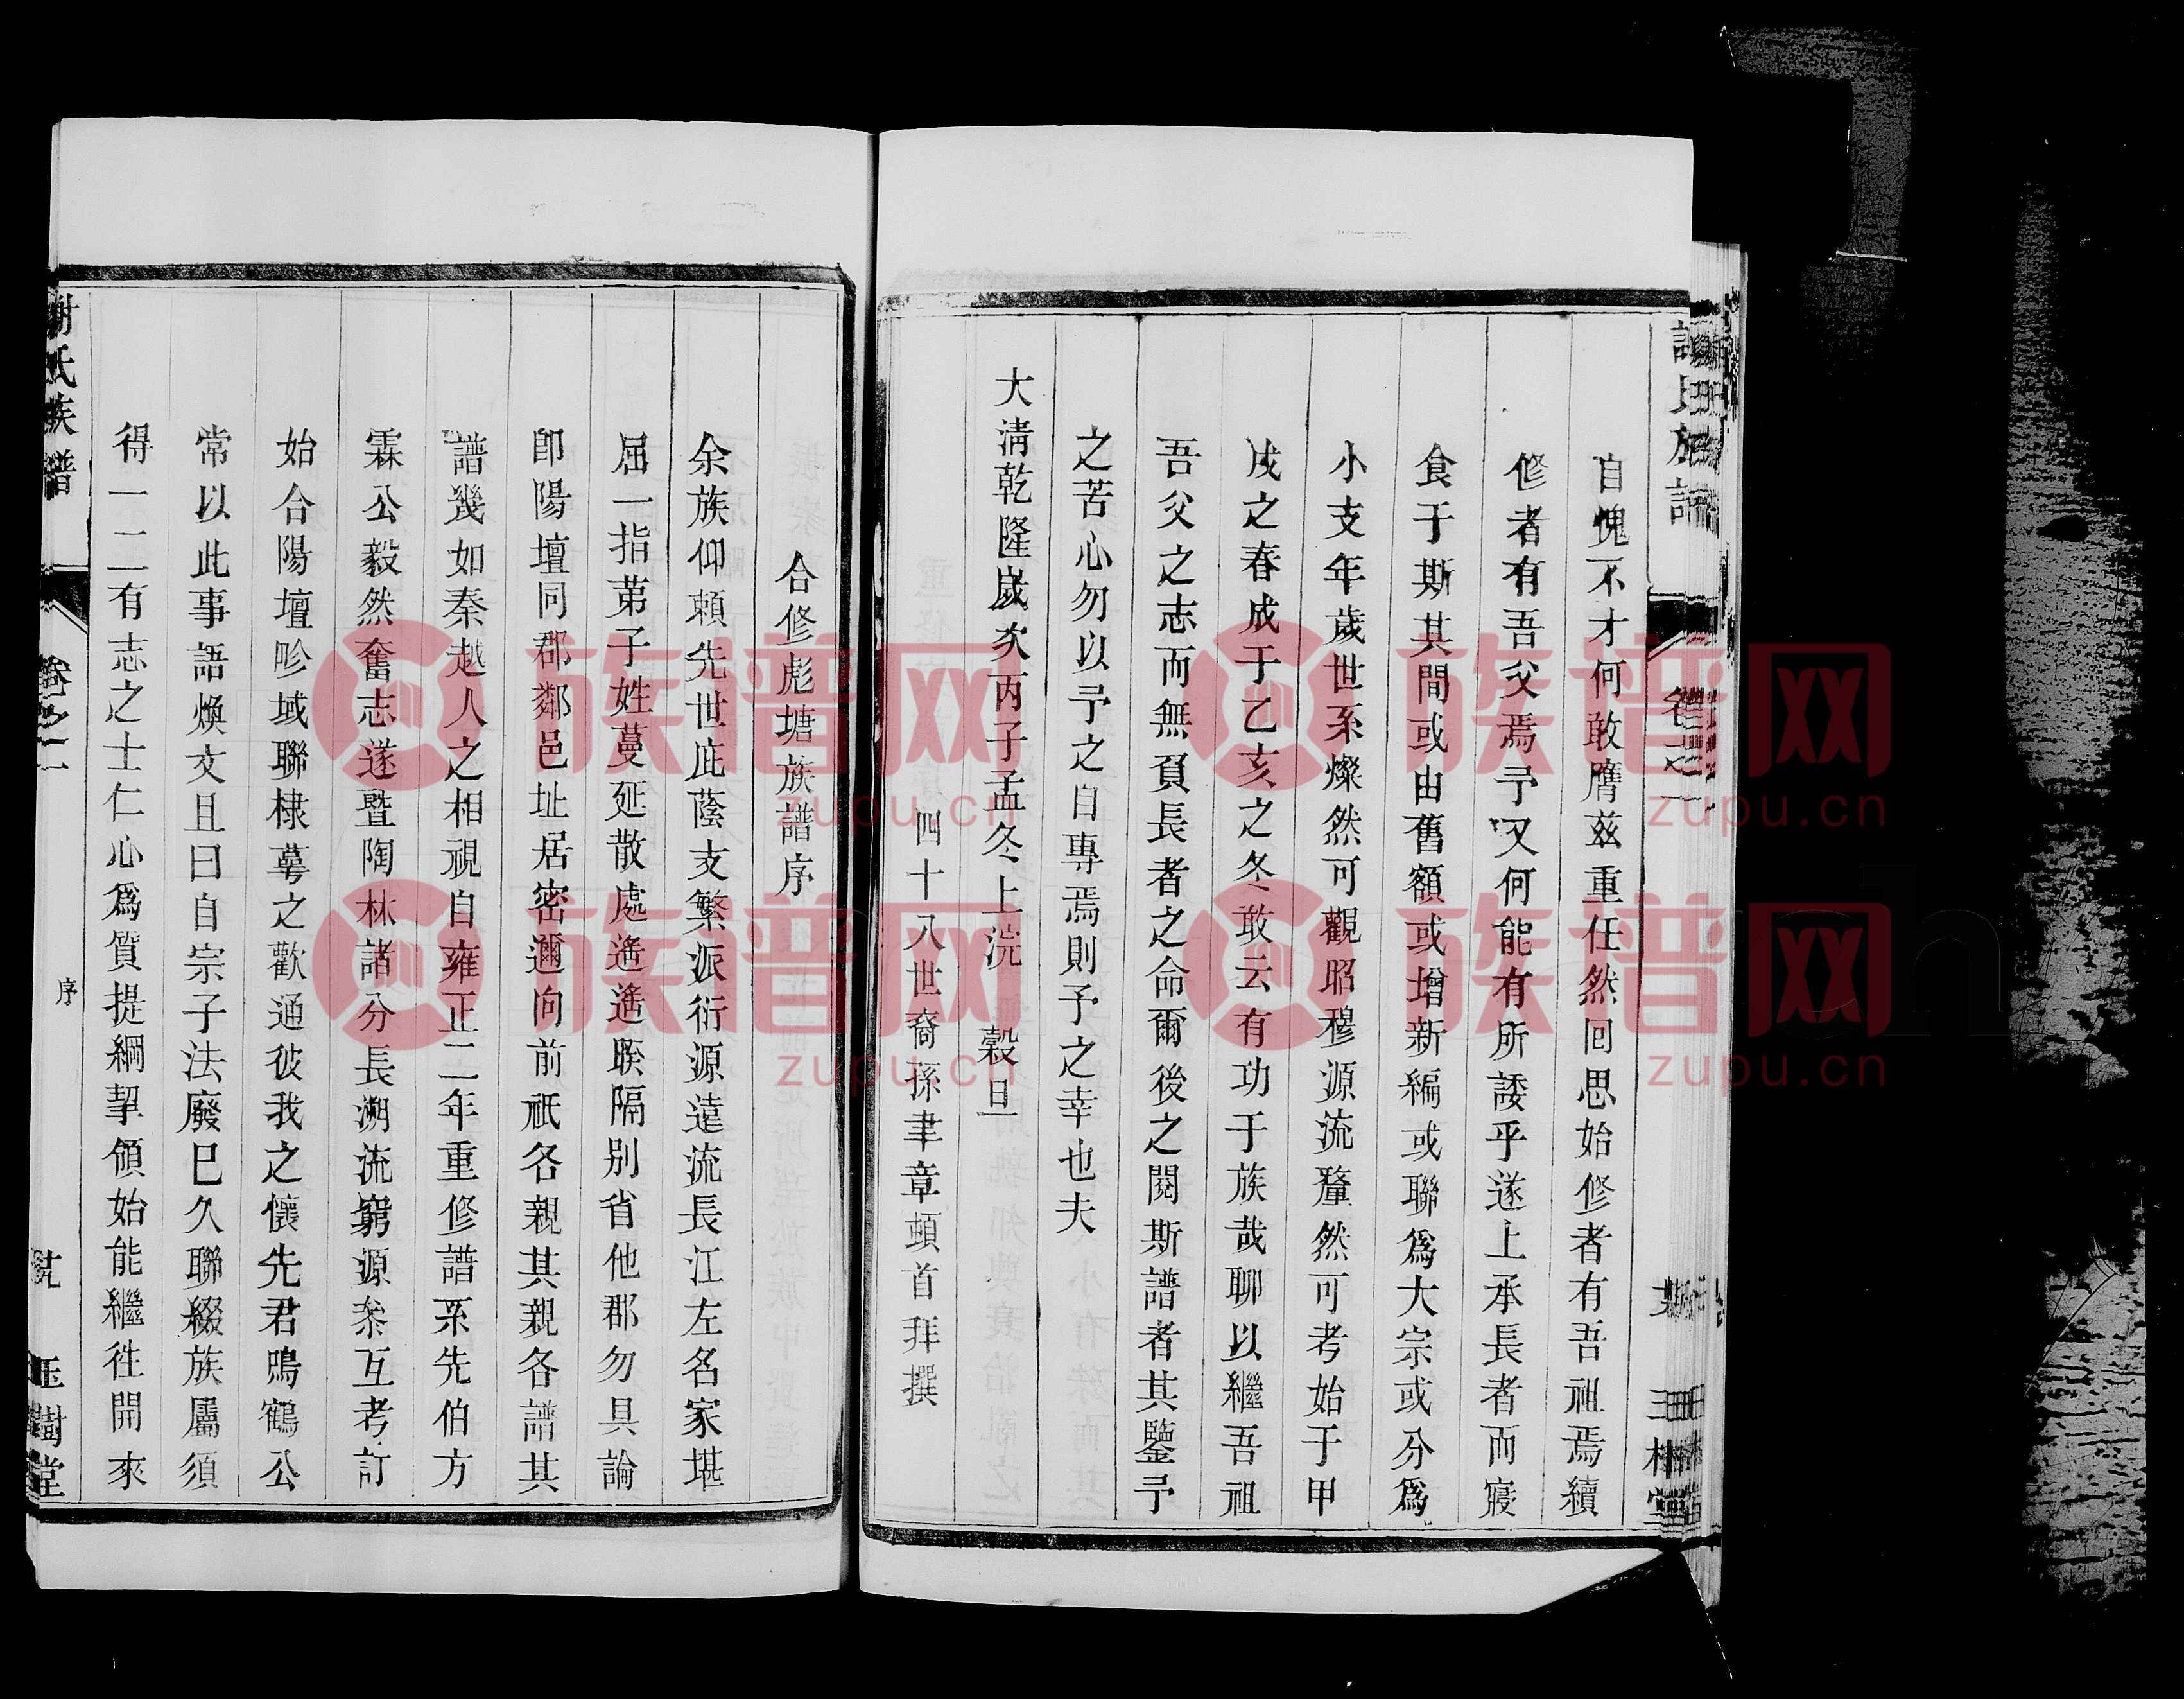 自愧不才何敢膺兹重任然回思始修者有吾祖焉續
修者有吾父焉予又何能有所諉乎遂上承長者而寢
食于斯其間或由舊額或增新編或聯爲大宗或分爲
小支年歲世系燦然可觀昭穆源流釐然可考始于甲
戌之春成于乙亥之冬敢云有功于族哉聊以繼吾祖
吾父之志而無負長者之命爾後之閱斯譜者其鑒予
之苦心勿以予之自專焉則予之幸也夫
大清乾隆歲次丙子孟冬上浣 穀旦
四十八世裔孫聿章頓首拜撰
合修彪塘族譜序
余族仰賴先世庇蔭支繁派衍源遠流長江左名家堪
屈一指第子姓蔓延散處遙遙睽隔別省他郡勿具論
卽陽壇同郡鄰邑址居密邇向前祇各親其親各譜其
譜幾如秦越人之相視自雍正二年重修譜系先伯方
霖公毅然奮志遂暨陶林諸分長溯流窮源叅互考訂
始合陽壇畛域聯棣萼之歡通彼我之懷先君鳴鶴公
常以此事語煥文且曰自宗子法廢巳久聯綴族屬須
得一二有志之士仁心爲質提綱挈領始能繼徃開來
謝氏族譜
卷之一
序
玉樹堂
族谱网
zupu.cn
族谱网
zupu.cn
族谱网
zupu.cn
族谱网
zupu.cn